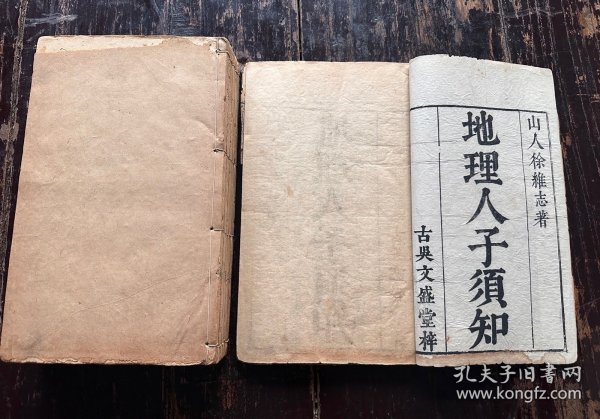 山人徐維志著
地理人子須知
古吳文盛堂梓
孔夫子旧书网
www.kongfz.com